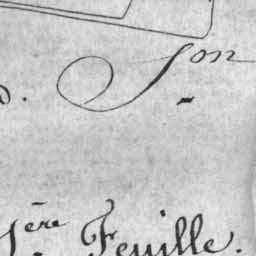 d. S.on
1.ère Feuille.